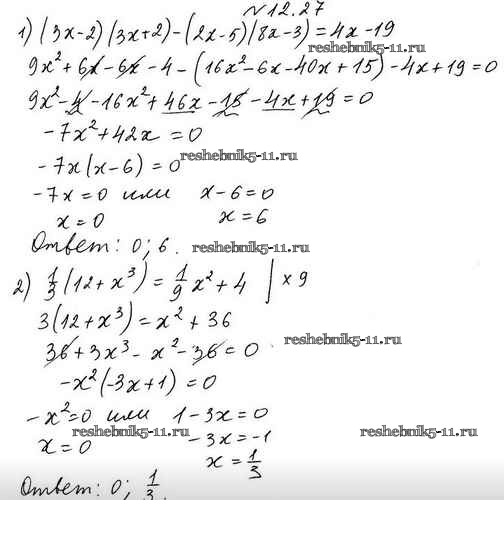 №12.27
1) (3x-2)(3x+2)-(2x-5)(8x-3)=4x-19
reshebnik5-11.ru
9x²+6x-6x-4-(16x²-6x-40x+15)-4x+19=0
9x²-4-16x²+46x-15-4x+19=0
-7x²+42x=0
-7x(x-6)=0 reshebnik5-11.ru
-7x=0 или x-6=0
x=0 x=6
Ответ: 0; 6. reshebnik5-11.ru
2) 1/3(12+x³)=1/9x²+4 | ×9
3(12+x³)=x²+36
36+3x³-x²-36=0 reshebnik5-11.ru
-x²(-3x+1)=0
-x²=0 или 1-3x=0
reshebnik5-11.ru reshebnik5-11.ru
x=0 -3x=-1
x=1/3
Ответ: 0; 1/3.